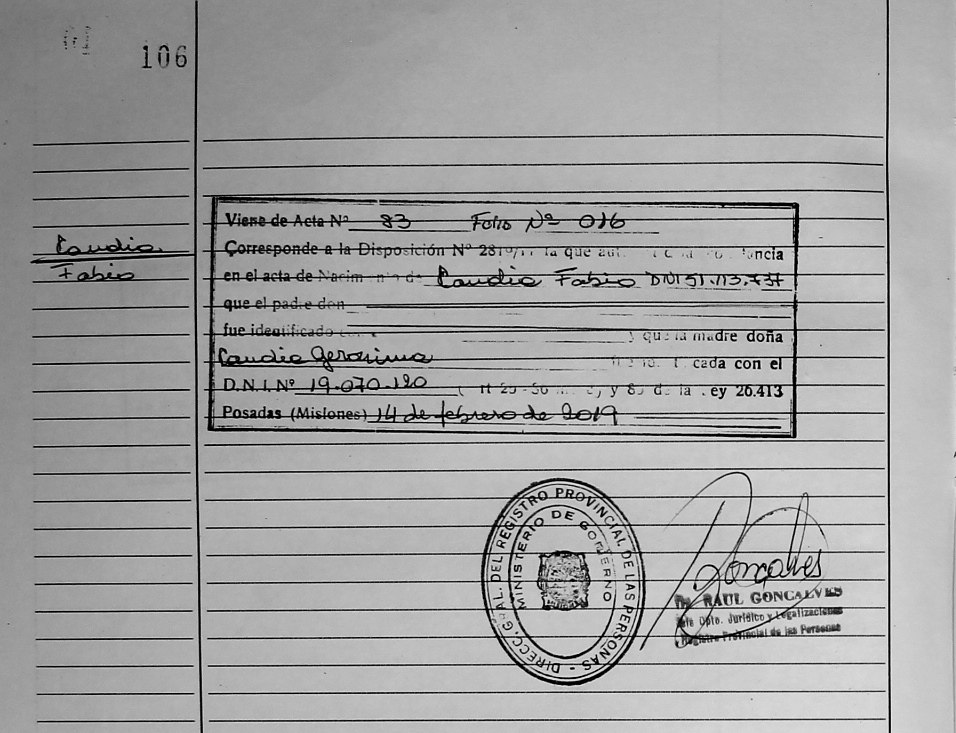 106
Candia
Fabio
Viene de Acta Nº 83 Folio Nº 016
Corresponde a la Disposición Nº 2819/ la que
en el acta de Nacim de Candia Fabio DNI 51.113.737
que el padre don
fue identificado y que la madre doña
Candia Geronima
cada con el
D.N.I. Nº 19.070.120 y 85 de la ey 26.413
Posadas (Misiones) 14 de febrero de 2019
DIRECC. GRAL. DEL REGISTRO PROVINCIAL DE LAS PERSONAS -
MINISTERIO DE GOBIERNO
Goncalves
Dr. RAUL GONCALVES
Jefe Dpto. Jurídico y Legalizaciones
Registro Provincial de las Personas